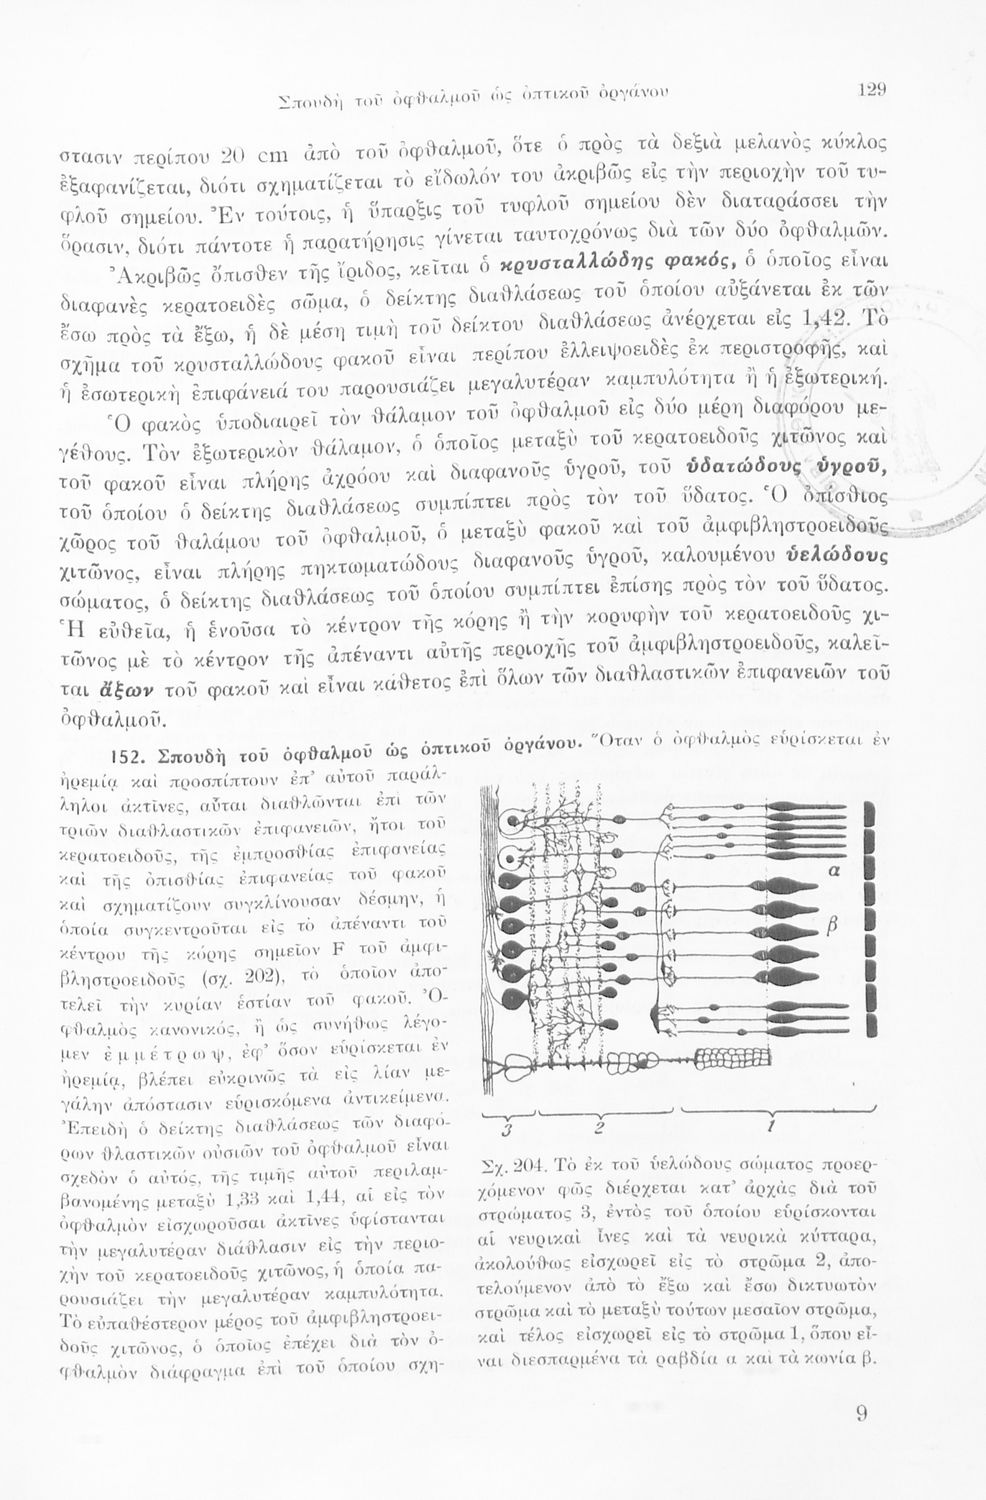 Σπουδὴ τοῦ ὀφθαλμοῦ ὡς ὀπτικοῦ ὀργάνου
129
στασιν περίπου 20 cm ἀπὸ τοῦ ὀφθαλμοῦ, ὅτε ὁ πρὸς τὰ δεξιὰ μελανὸς κύκλος
ἐξαφανίζεται, διότι σχηματίζεται τὸ εἴδωλόν του ἀκριβῶς εἰς τὴν περιοχὴν τοῦ τυ-
φλοῦ σημείου. Ἐν τούτοις, ἡ ὕπαρξις τοῦ τυφλοῦ σημείου δὲν διαταράσσει τὴν
ὅρασιν, διότι πάντοτε ἡ παρατήρησις γίνεται ταυτοχρόνως διὰ τῶν δύο ὀφθαλμῶν.
Ἀκριβῶς ὄπισθεν τῆς ἴριδος, κεῖται ὁ κρυσταλλώδης φακός, ὁ ὁποῖος εἶναι
διαφανὲς κερατοειδὲς σῶμα, ὁ δείκτης διαθλάσεως τοῦ ὁποίου αὐξάνεται ἐκ τῶν
ἔσω πρὸς τὰ ἔξω, ἡ δὲ μέση τιμὴ τοῦ δείκτου διαθλάσεως ἀνέρχεται εἰς 1,42. Τὸ
σχῆμα τοῦ κρυσταλλώδους φακοῦ εἶναι περίπου ἐλλειψοειδὲς ἐκ περιστροφῆς, καὶ
ἡ ἐσωτερικὴ ἐπιφάνειά του παρουσιάζει μεγαλυτέραν καμπυλότητα ἢ ἡ ἐξωτερική.
Ὁ φακὸς ὑποδιαιρεῖ τὸν θάλαμον τοῦ ὀφθαλμοῦ εἰς δύο μέρη διαφόρου με-
γέθους. Τὸν ἐξωτερικὸν θάλαμον, ὁ ὁποῖος μεταξὺ τοῦ κερατοειδοῦς χιτῶνος καὶ
τοῦ φακοῦ εἶναι πλήρης ἀχρόου καὶ διαφανοῦς ὑγροῦ, τοῦ ὑδατώδους ὑγροῦ,
τοῦ ὁποίου ὁ δείκτης διαθλάσεως συμπίπτει πρὸς τὸν τοῦ ὕδατος. Ὁ ὀπίσθιος
χῶρος τοῦ θαλάμου τοῦ ὀφθαλμοῦ, ὁ μεταξὺ φακοῦ καὶ τοῦ ἀμφιβληστροειδοῦς
χιτῶνος, εἶναι πλήρης πηκτωματώδους διαφανοῦς ὑγροῦ, καλουμένου ὑελώδους
σώματος, ὁ δείκτης διαθλάσεως τοῦ ὁποίου συμπίπτει ἐπίσης πρὸς τὸν τοῦ ὕδατος.
Ἡ εὐθεῖα, ἡ ἑνοῦσα τὸ κέντρον τῆς κόρης ἢ τὴν κορυφὴν τοῦ κερατοειδοῦς χι-
τῶνος μὲ τὸ κέντρον τῆς ἀπέναντι αὐτῆς περιοχῆς τοῦ ἀμφιβληστροειδοῦς, καλεῖ-
ται ἄξων τοῦ φακοῦ καὶ εἶναι κάθετος ἐπὶ ὅλων τῶν διαθλαστικῶν ἐπιφανειῶν τοῦ
ὀφθαλμοῦ.
152. Σπουδὴ τοῦ ὀφθαλμοῦ ὡς ὀπτικοῦ ὀργάνου. Ὅταν ὁ ὀφθαλμὸς εὑρίσκεται ἐν
ἠρεμίᾳ καὶ προσπίπτουν ἐπ' αὐτοῦ παράλ-
ληλοι ἀκτῖνες, αὗται διαθλῶνται ἐπὶ τῶν
τριῶν διαθλαστικῶν ἐπιφανειῶν, ἤτοι τοῦ
κερατοειδοῦς, τῆς ἐμπροσθίας ἐπιφανείας
καὶ τῆς ὀπισθίας ἐπιφανείας τοῦ φακοῦ
καὶ σχηματίζουν συγκλίνουσαν δέσμην, ἡ
ὁποία συγκεντροῦται εἰς τὸ ἀπέναντι τοῦ
κέντρου τῆς κόρης σημεῖον F τοῦ ἀμφι-
βληστροειδοῦς (σχ. 202), τὸ ὁποῖον ἀπο-
τελεῖ τὴν κυρίαν ἑστίαν τοῦ φακοῦ. Ὁ ὀ-
φθαλμὸς κανονικός, ἢ ὡς συνήθως λέγο-
μεν ἐμμέτρωψ, ἐφ' ὅσον εὑρίσκεται ἐν
ἠρεμίᾳ, βλέπει εὐκρινῶς τὰ εἰς λίαν με-
γάλην ἀπόστασιν εὑρισκόμενα ἀντικείμενα.
Ἐπειδὴ ὁ δείκτης διαθλάσεως τῶν διαφό-
ρων θλαστικῶν οὐσιῶν τοῦ ὀφθαλμοῦ εἶναι
σχεδὸν ὁ αὐτός, τῆς τιμῆς αὐτοῦ περιλαμ-
βανομένης μεταξὺ 1,33 καὶ 1,44, αἱ εἰς τὸν
ὀφθαλμὸν εἰσχωροῦσαι ἀκτῖνες ὑφίστανται
τὴν μεγαλυτέραν διάθλασιν εἰς τὴν περιο-
χὴν τοῦ κερατοειδοῦς χιτῶνος, ἡ ὁποία πα-
ρουσιάζει τὴν μεγαλυτέραν καμπυλότητα.
Τὸ εὐπαθέστερον μέρος τοῦ ἀμφιβληστροει-
δοῦς χιτῶνος, ὁ ὁποῖος ἐπέχει διὰ τὸν ὀ-
φθαλμὸν διάφραγμα ἐπὶ τοῦ ὁποίου σχη-
α
β
3
2
1
Σχ. 204. Τὸ ἐκ τοῦ ὑελώδους σώματος προερ-
χόμενον φῶς διέρχεται κατ' ἀρχὰς διὰ τοῦ
στρώματος 3, ἐντὸς τοῦ ὁποίου εὑρίσκονται
αἱ νευρικαὶ ἶνες καὶ τὰ νευρικὰ κύτταρα,
ἀκολούθως εἰσχωρεῖ εἰς τὸ στρῶμα 2, ἀπο-
τελούμενον ἀπὸ τὸ ἔξω καὶ ἔσω δικτυωτὸν
στρῶμα καὶ τὸ μεταξὺ τούτων μεσαῖον στρῶμα,
καὶ τέλος εἰσχωρεῖ εἰς τὸ στρῶμα 1, ὅπου εἶ-
ναι διεσπαρμένα τὰ ραβδία α καὶ τὰ κωνία β.
9